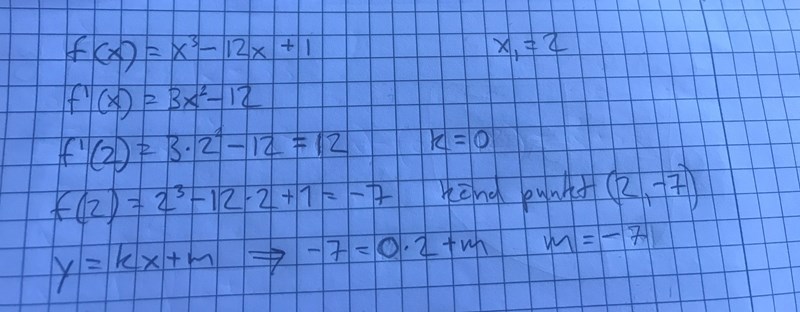 f(x) = x³ - 12x + 1 x₁ = 2
f'(x) = 3x² - 12
f'(2) = 3·2² - 12 = 12 k = 0
f(2) = 2³ - 12·2 + 1 = -7 känd punkt (2, -7)
y = kx + m ⇒ -7 = 0·2 + m m = -7